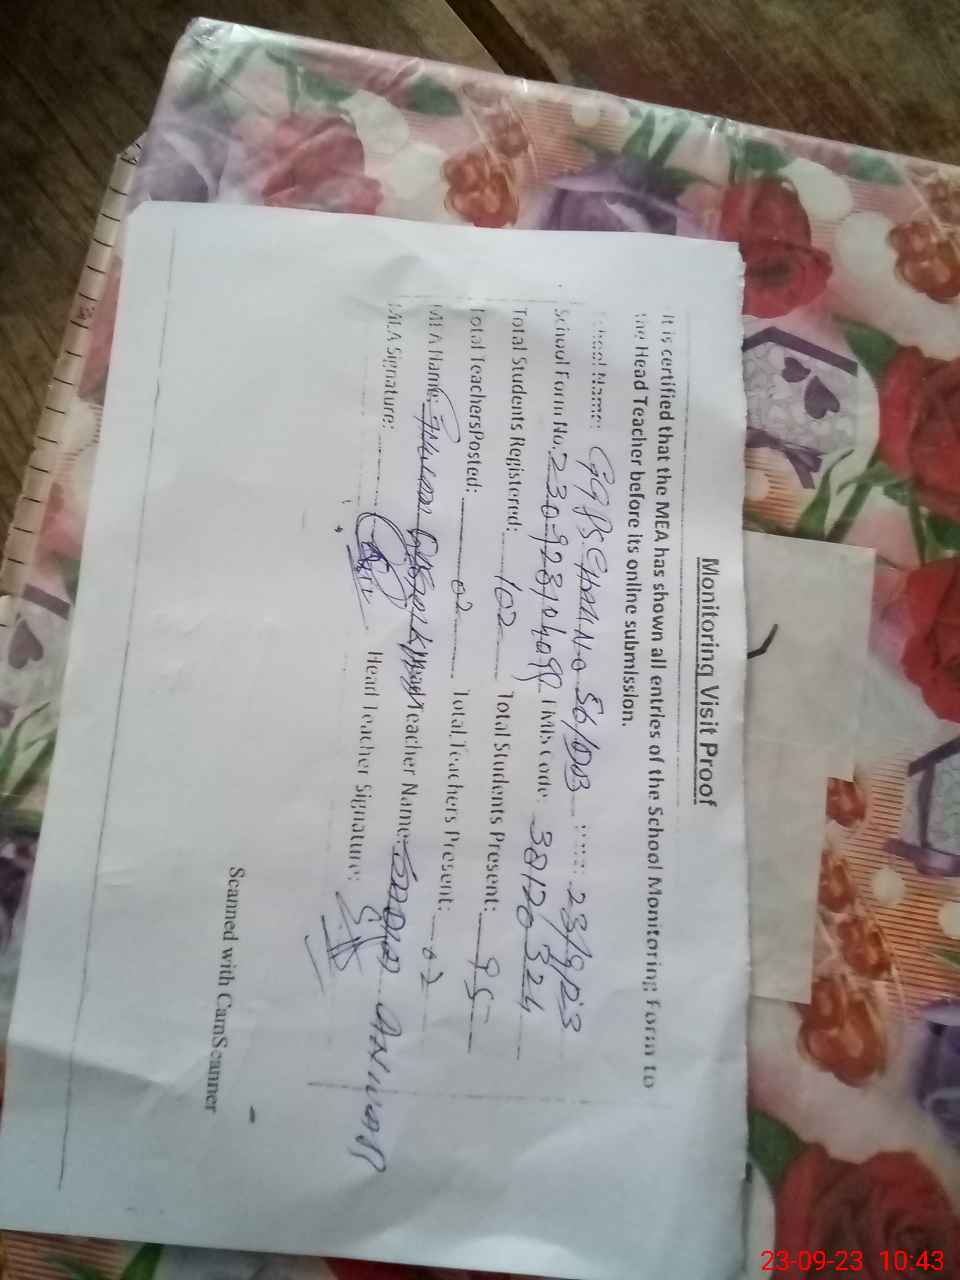 Monitoring Visit Proof
It is certified that the MEA has shown all entries of the School Monitoring Form to
the Head Teacher before its online submission.
School Name: GGPS CHAK No 56/DB 23/9/23
School Form No. 230-923104099 EMIS Code: 38120324
Total Students Registered: 102 Total Students Present: 95
Total TeachersPosted: 02 Total Teachers Present: 02
MEA Name: Teacher Name: ANWAR
MEA Signature: Head Teacher Signature:
Scanned with CamScanner
23-09-23 10:43